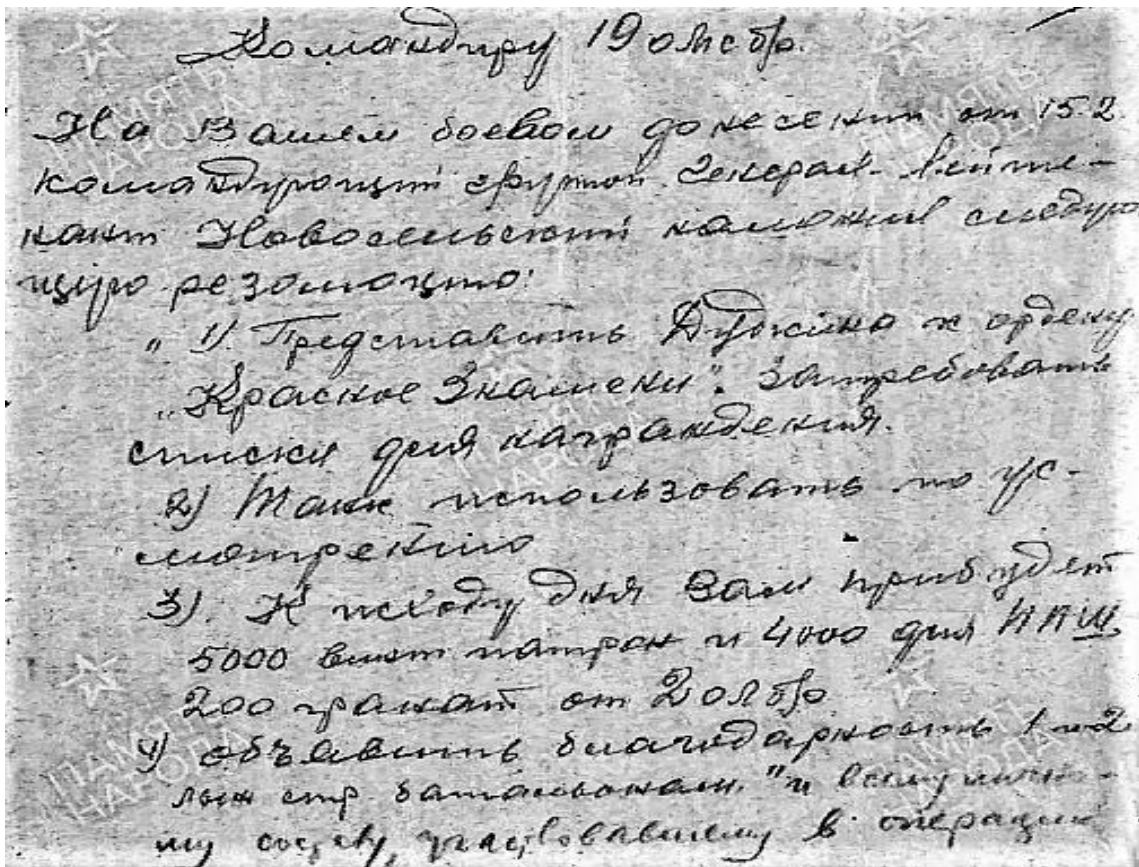 Командиру 19 олсбр.
На Вашем боевом донесении от 15.2.
командующий группой генерал-лейте-
нант Новосельский наложил следую
щую резолюцию:
„1). Представить Дужкина к ордену
„Красное Знамени". Затребовать
списки для награждения.
2) Танк использовать по ус-
мотрению
3). К исходу дня Вам прибудет
5000 винт патрон и 4000 для ППШ,
200 гранат от 2 олбр
4) объявить благодарность 1 и 2
лыж стр батальонам." и всему лично-
му составу, участвовавшему в операции
ПАМЯТЬ
НАРОДА